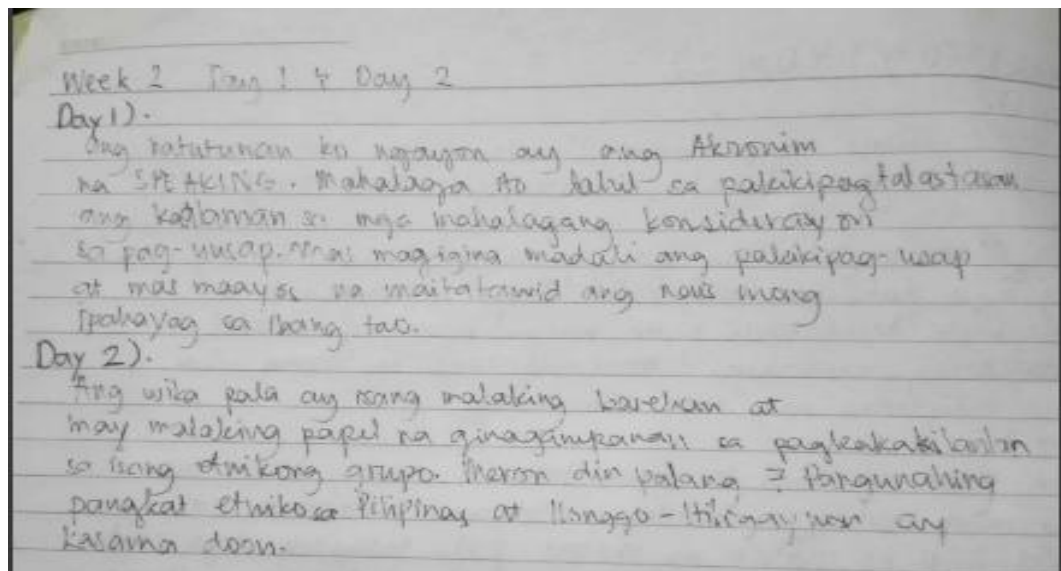 Week 2 Day 1 & Day 2
Day 1).
Ang natutunan ko ngayon ay ang Akronim
na SPEAKING. Mahalaga ito dahil sa pakikipagtalastasan
ang kaalaman sa mga mahalagang konsiderasyon
sa pag-uusap. Mas magiging madali ang pakikipag-usap
at mas maayos na maitatawid ang nais mong
ipahayag sa ibang tao.
Day 2).
Ang wika pala ay isang malaking at
may malaking papel na ginagampanan sa pagkakakilanlan
sa isang etnikong grupo. Meron din palang 7 Pangunahing
pangkat etniko sa Pilipinas at Ilonggo - ay
kasama doon.